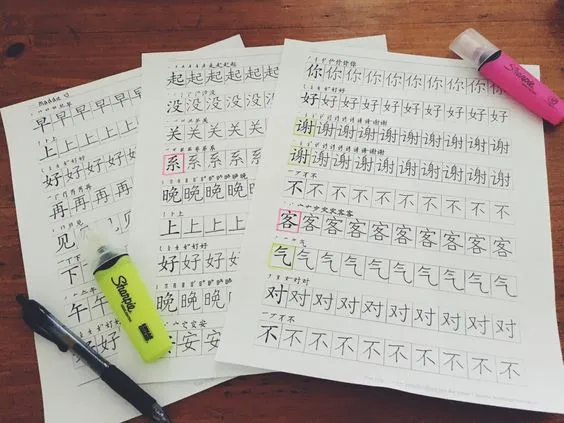 maddie
早早早早早
上上上上上
好好好好好
再再再再
见见见
下
午午
好好
起起起起起
没没没没没
关关关关关
系系系系系
晚晚晚晚晚
上上上上
好好好好
晚晚晚晚
安安安
你你你你你你你你你
好好好好好好好好好
谢谢谢谢谢谢谢谢谢
谢谢谢谢谢谢谢谢谢
不不不不不不不不不
客客客客客客客客客
气气气气气气气气气
对对对对对对对对对
不不不不不不不不不
Sharpie
Sharpie